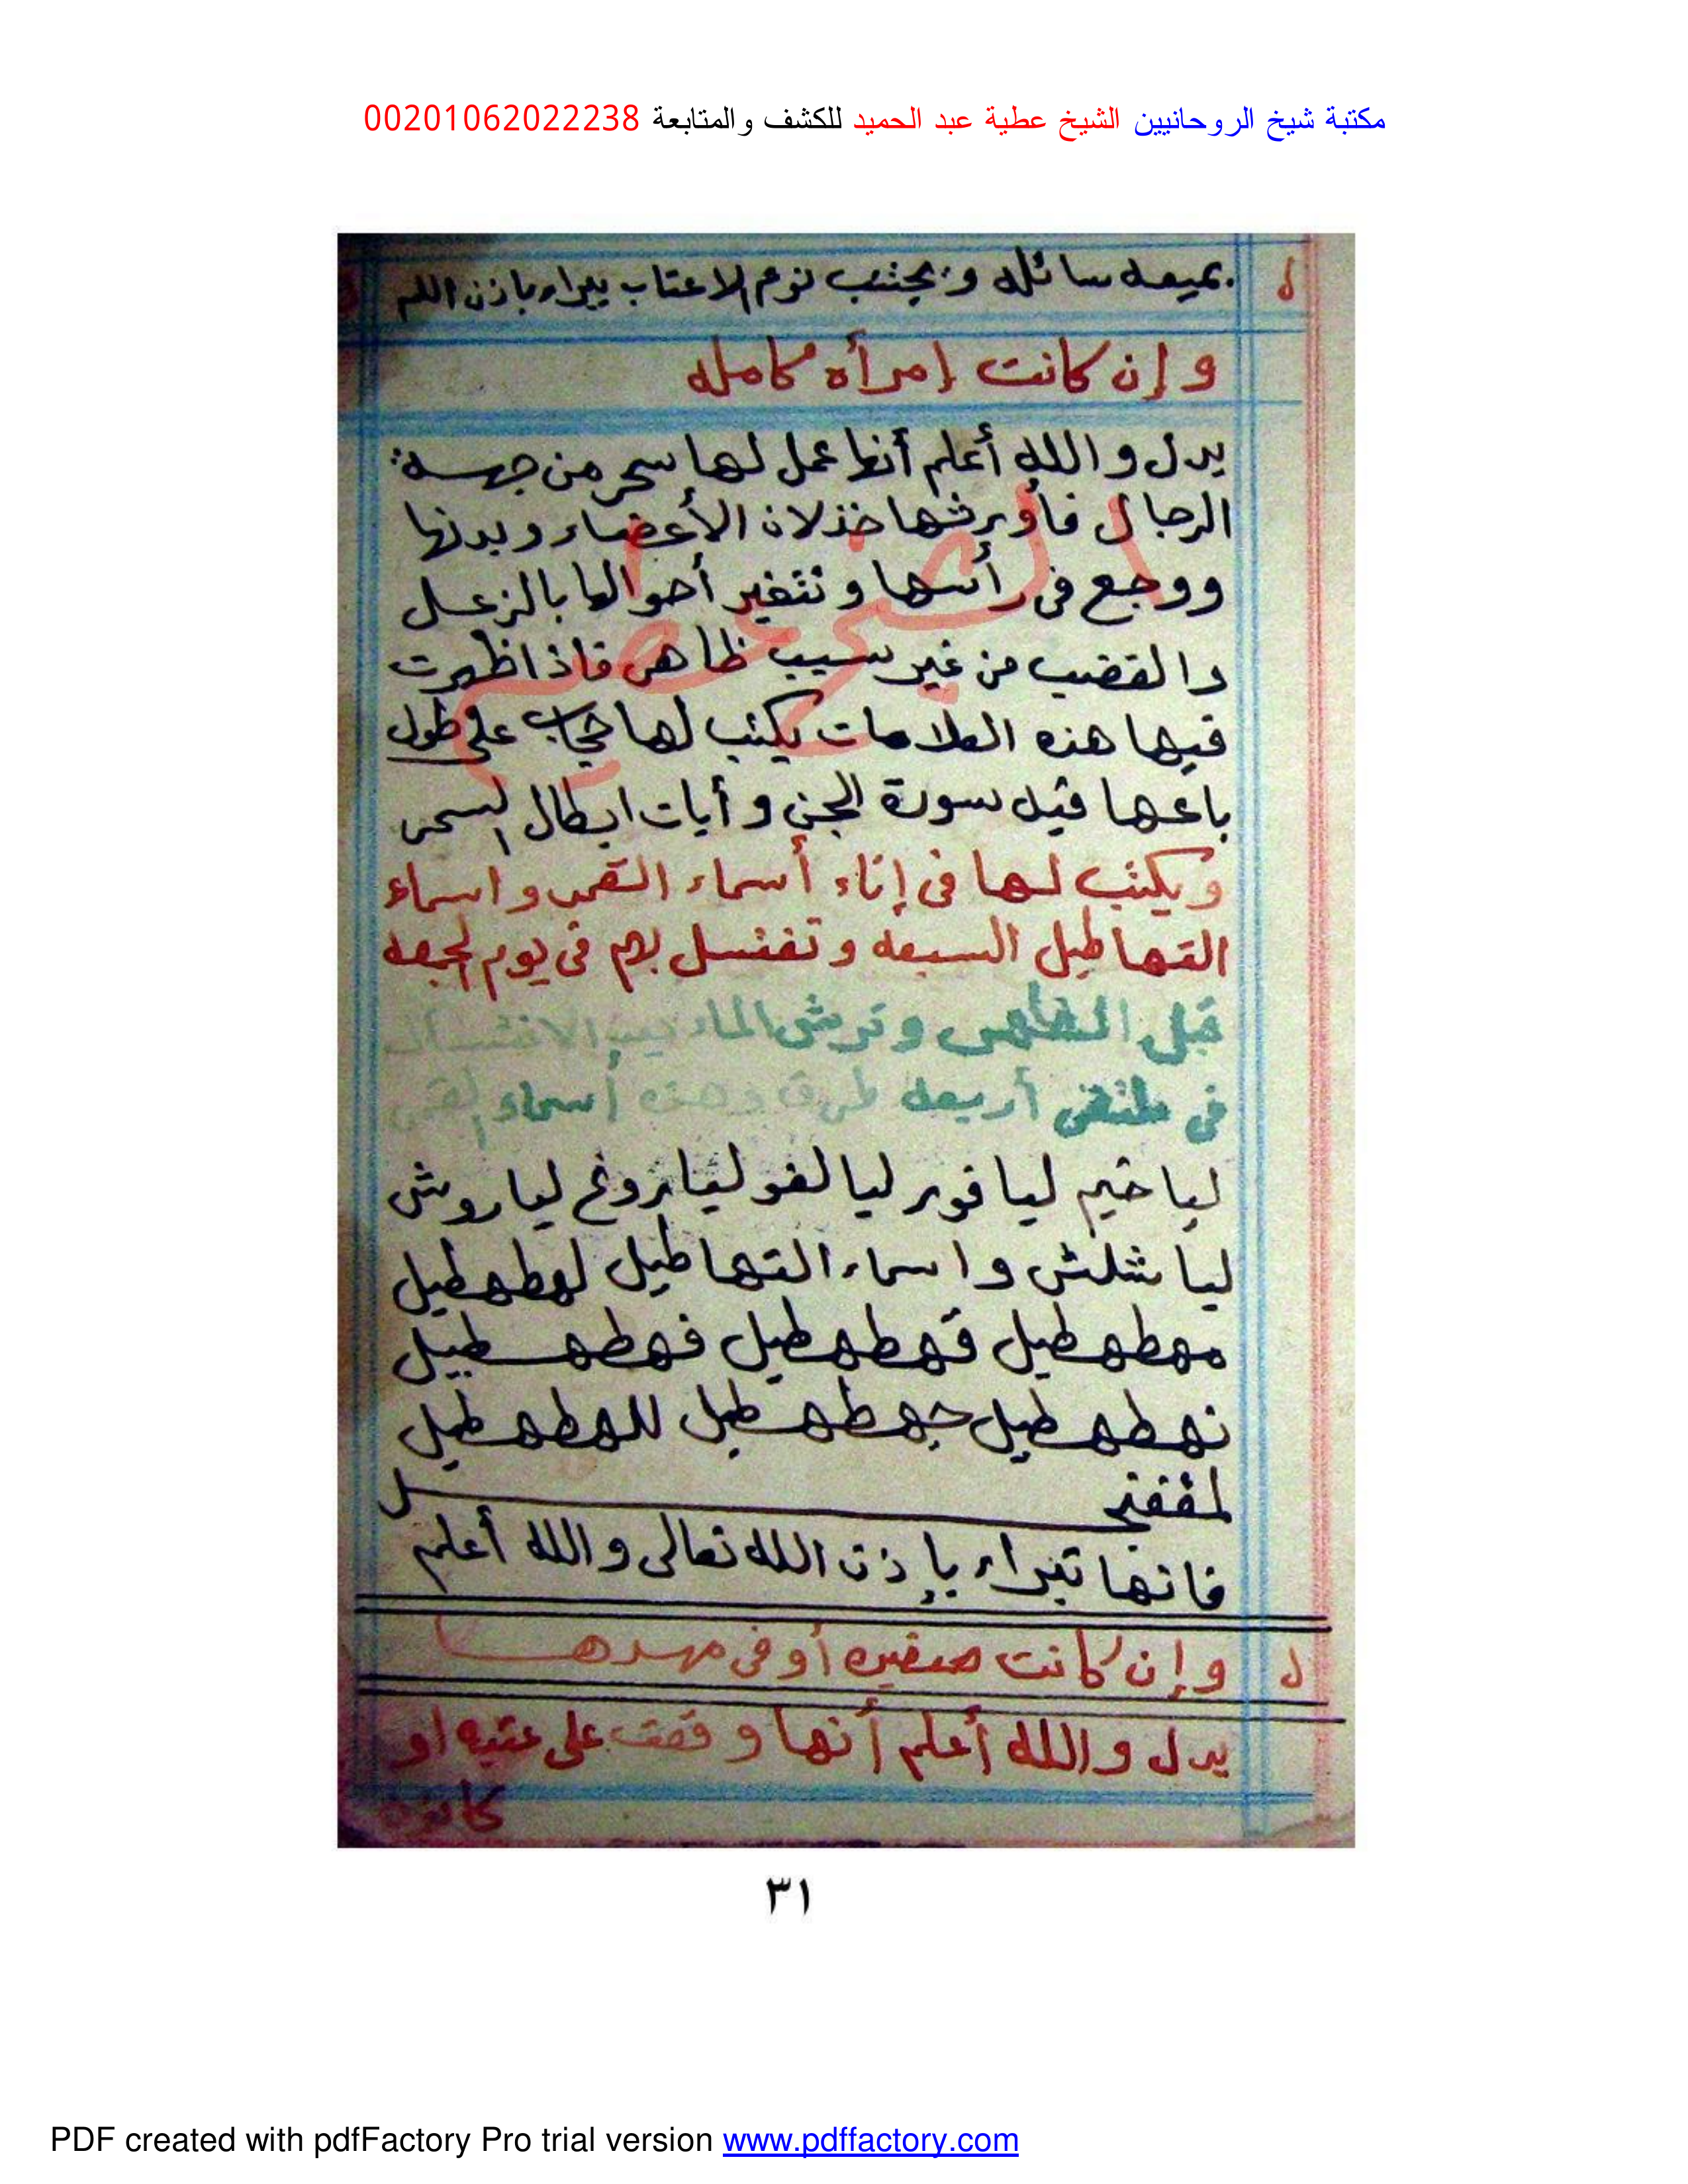 مكتبة شيخ الروحانيين الشيخ عطية عبد الحميد للكشف والمتابعة 00201062022238
بميعه سائله ويجتنب نوم الاعتاب يبراء باذن الله
وإن كانت إمرأه كامله
يدل والله أعلم أنها عمل لها سحر من جهه
الرجال فأورثها خذلان الأعضاء وبدنها
ووجع فى رأسها وتتغير أحوالها بالزعل
والغضب من غير سبب ظاهر فاذا ظهرت
فيها هذه العلامات يكتب لها حجاب على طول
باعها فيه سورة الجن وأيات ابطال السحر
ويكتب لها فى إناء أسماء القمر واسماء
التهاطيل السبعه وتغتسل بهم فى يوم الجمعه
قبل الظهر وترش الماء بعد الاغتسال
فى ملتقى أربعه طرق وهذه أسماء القمر
ليا خيم ليا فور ليا لغو ليا روغ ليا روش
ليا شلش واسماء التهاطيل لهطهطيل
مهطهطيل قهطهطيل فهطهطيل
نهطهطيل جهطهطيل للهطهطيل
فانها تبراء بإذن الله تعالى والله أعلم
وإن كانت صغيره أو فى مهدها
يدل والله أعلم أنها وقعت على عتبه او
٣١
PDF created with pdfFactory Pro trial version www.pdffactory.com